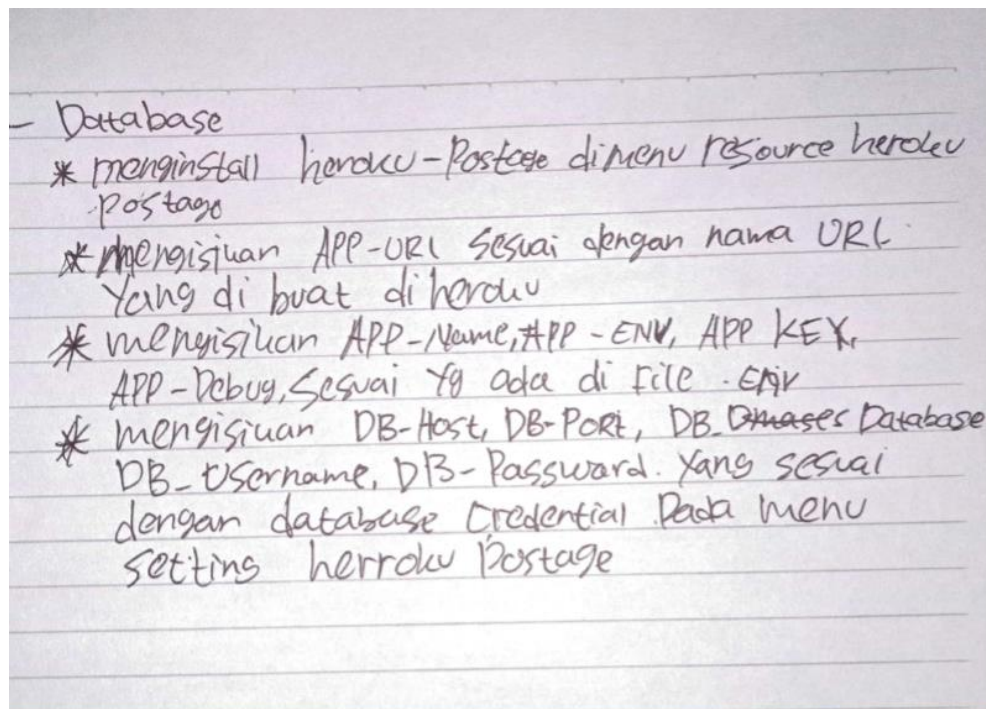 - Database
* menginstall heroku-Postage dimenu resource heroku
postage
* mengisikan APP-URL sesuai dengan nama URL
Yang di buat di heroku
* mengisikan APP-Name, APP-ENV, APP KEY,
APP-Debug, Sesuai Yg ada di File .env
* mengisikan DB-Host, DB-PORt, DB_ Database
DB_Username, DB-Password. Yang sesuai
dengan database Credential Pada menu
setting herroku Postage